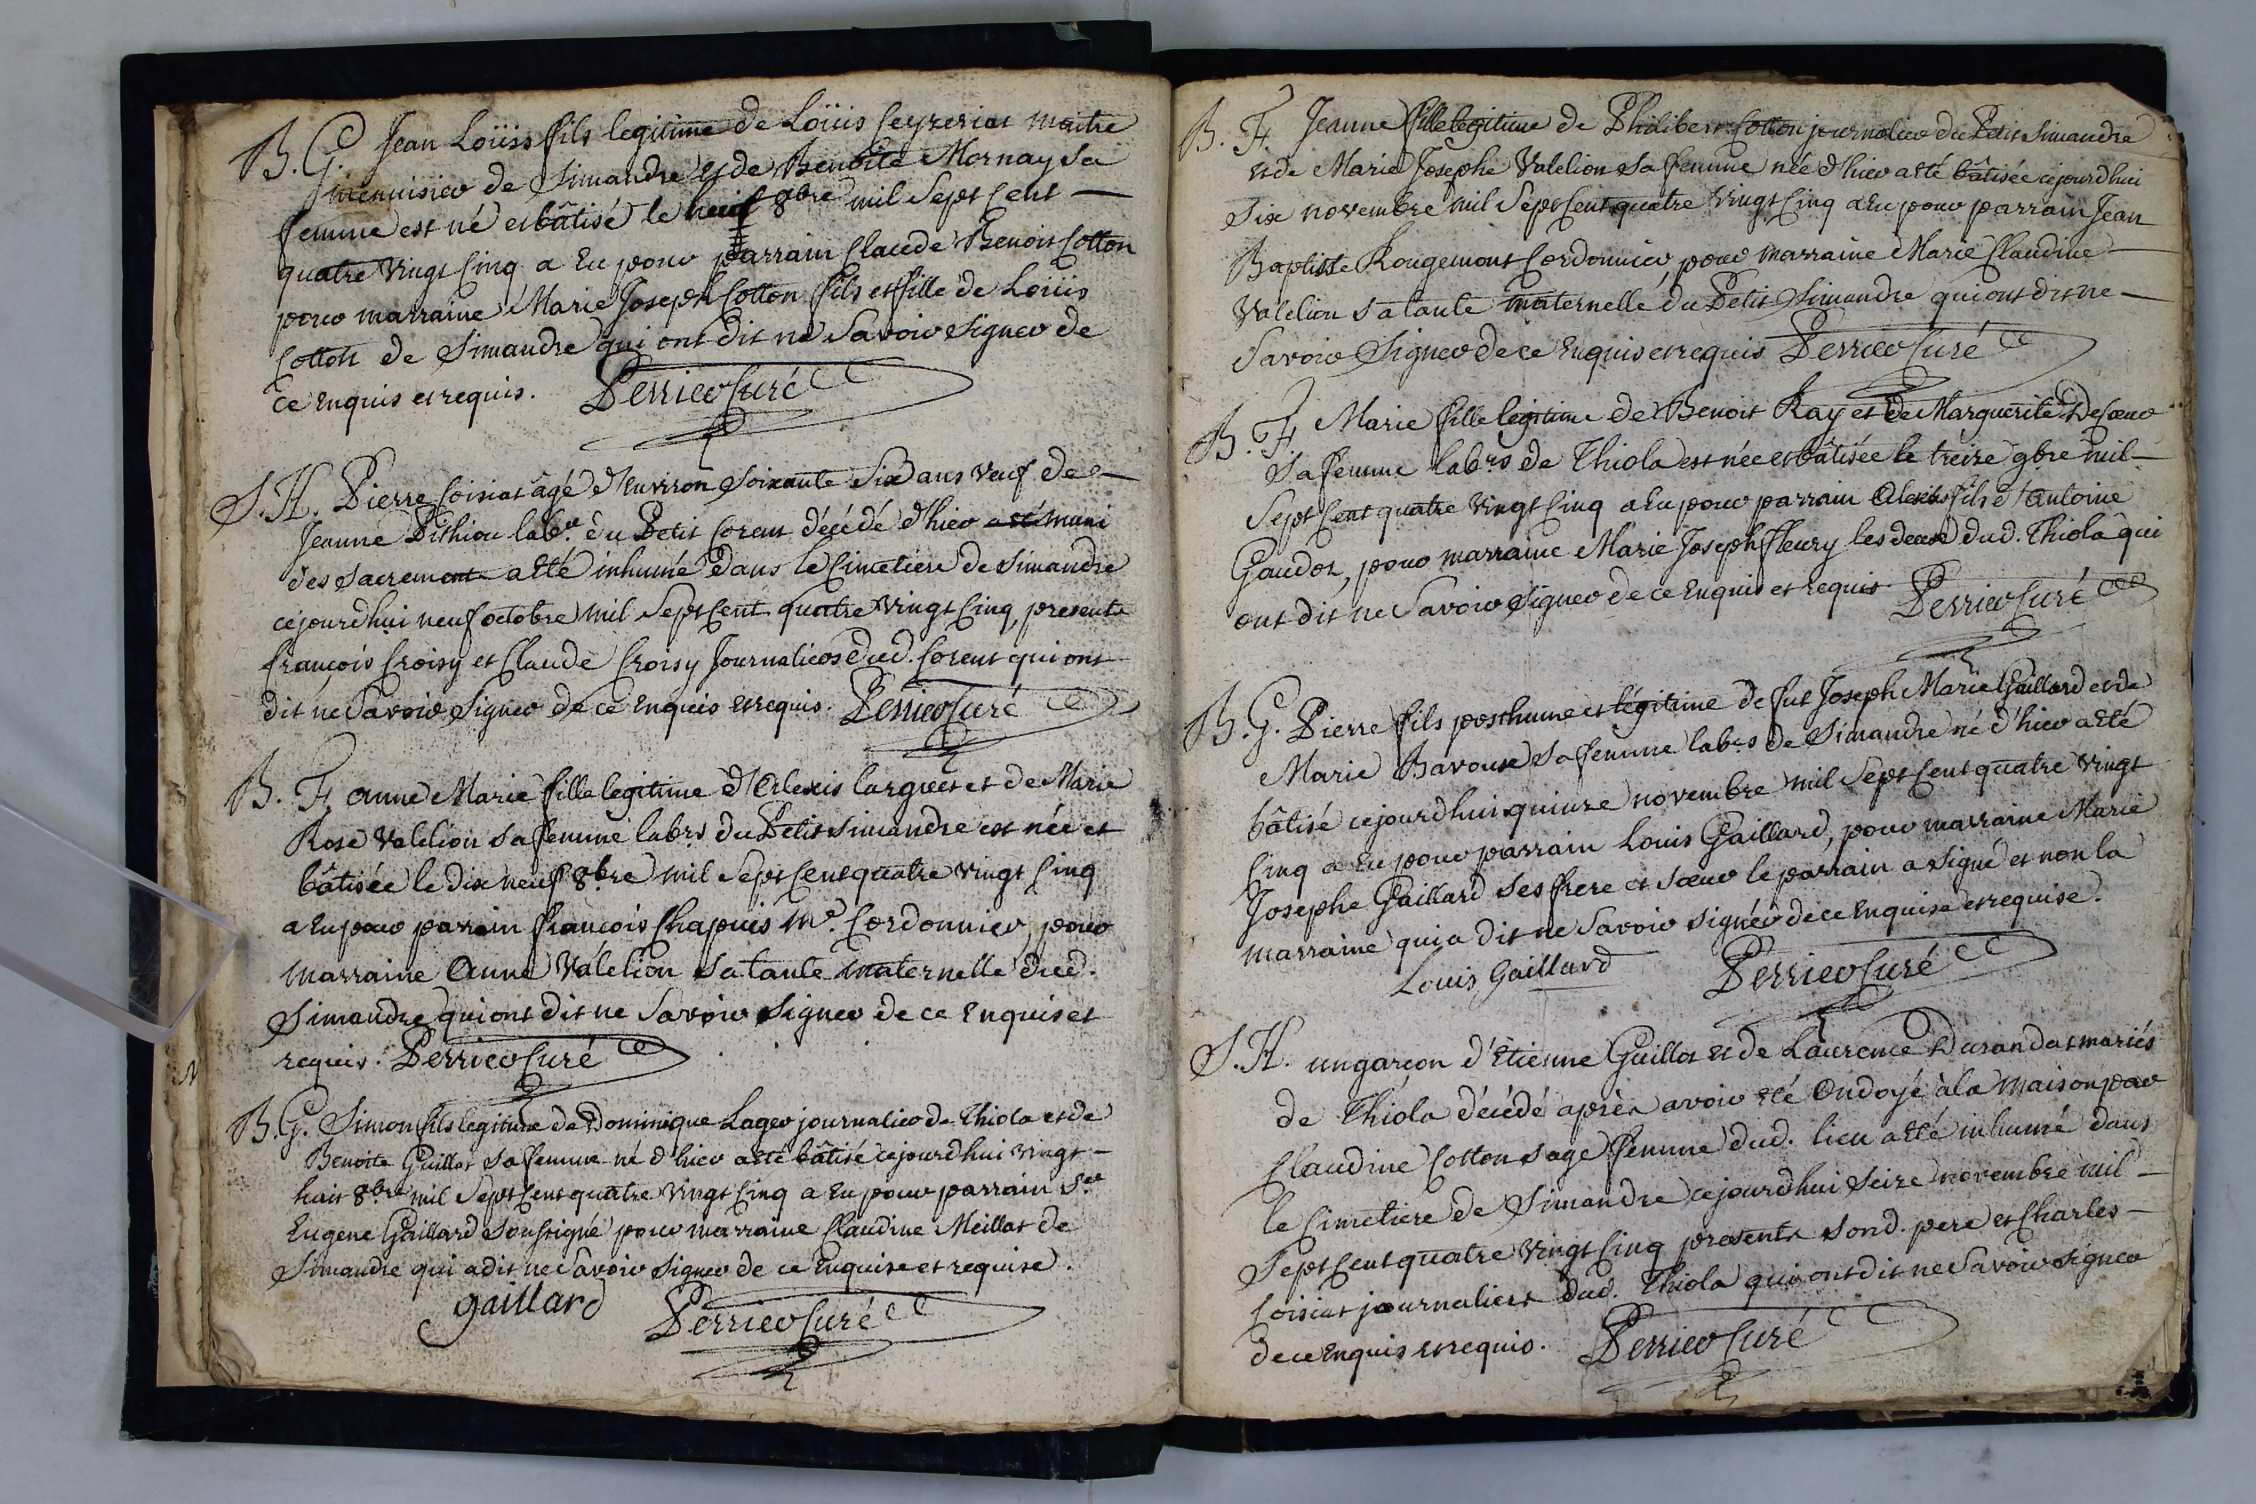 B. G. Jean Loüis fils legitime de Loüis Ceyzeriat maitre
menuisier de Simandre et de Benoite Mornay sa
femme est né et bâtisé le neuf 8bre mil sept cent
quatre vingt cinq a eu pour parrain Claude Benoit Cotton
pour marraine Marie Joseph Cotton fils et fille de Loüis
Cotton de Simandre qui ont dit ne savoir signer de
ce enquis et requis. Perrier Curé
S. H. Pierre Coisiat âgé d'environ soixante six ans veuf de
Jeanne Pithiou labr. du Petit Corent décédé d'hier muni
des sacrement a été inhumé dans le cimetiere de Simandre
cejourdhui neuf octobre mil sept cent quatre vingt cinq, presents
francois Croisy et Claude Croisy journaliers dud. Corent qui ont
dit ne savoir signer de ce enquis et requis. Perrier Curé
B. F. anne Marie fille legitime d'Alexis larguet et de Marie
Rose Valelion sa femme labrs du Petit Simandre est née et
bâtisée le dix neuf 8bre mil sept cent quatre vingt cinq
a eu pour parrain françois Chapuis Me. Cordonnier, pour
marraine Anne Valelion sa tante maternelle dud.
Simandre qui ont dit ne savoir signer de ce enquis et
requis. Perrier Curé
B. G. Simon fils legitime de Dominique Lager journalier de Thiola et de
Benoite Guillot sa femme né d'hier a été bâtisé cejourdhui vingt
huit 8bre mil sept cent quatre vingt cinq a eu pour parrain Sr
Eugene Gaillard soussigné pour marraine Claudine Meillat de
Simandre qui a dit ne savoir signer de ce enquise et requise.
gaillard Perrier Curé
B. F. Jeanne fille legitime de Philibert Cotton journalier du Petit Simandre
et de Marie Josephe Valelion sa femme née d'hier a été bâtisée cejourdhui
six novembre mil sept cent quatre vingt cinq a eu pour parrain Jean
Baptiste Rougemont Cordonnier, pour marraine Marie Claudine
Valelion sa tante maternelle du Petit Simandre qui ont dit ne
savoir signer de ce enquis et requis Perrier Curé
B. F. Marie fille legitime de Benoit Ray et de Marguerite Decoeur
sa femme labrs de Thiola est née et bâtisée le treize 9bre mil
sept cent quatre vingt cinq a eu pour parrain Alexis fils d'Antoine
Gaudet, pour marraine Marie Joseph fleury les deux dud. Thiola qui
ont dit ne savoir signer de ce enquis et requis Perrier Curé
B. G. Pierre fils posthume et légitime de fut Joseph Marie Gaillard et de
Marie Bavoux sa femme labrs de Simandre né d'hier a été
bâtisé cejourdhui quinze novembre mil sept cent quatre vingt
cinq a eu pour parrain Louis Gaillard, pour marraine Marie
Josephe Gaillard ses frere et soeur le parrain a signé et non la
marraine qui a dit ne savoir signer de ce enquise et requise.
Louis Gaillard Perrier Curé
S. H. un garçon d'Etienne Guillot et de Laurence Durandat mariés
de Thiola décédé après avoir été Ondoyé à la maison par
Claudine Cotton sage femme dud. lieu a été inhumé dans
le cimetiere de Simandre cejourdhui seize novembre mil
sept cent quatre vingt cinq presents sond. pere et Charles
Coisiat journaliers dud. Thiola qui ont dit ne savoir signer
de ce enquis et requis. Perrier Curé